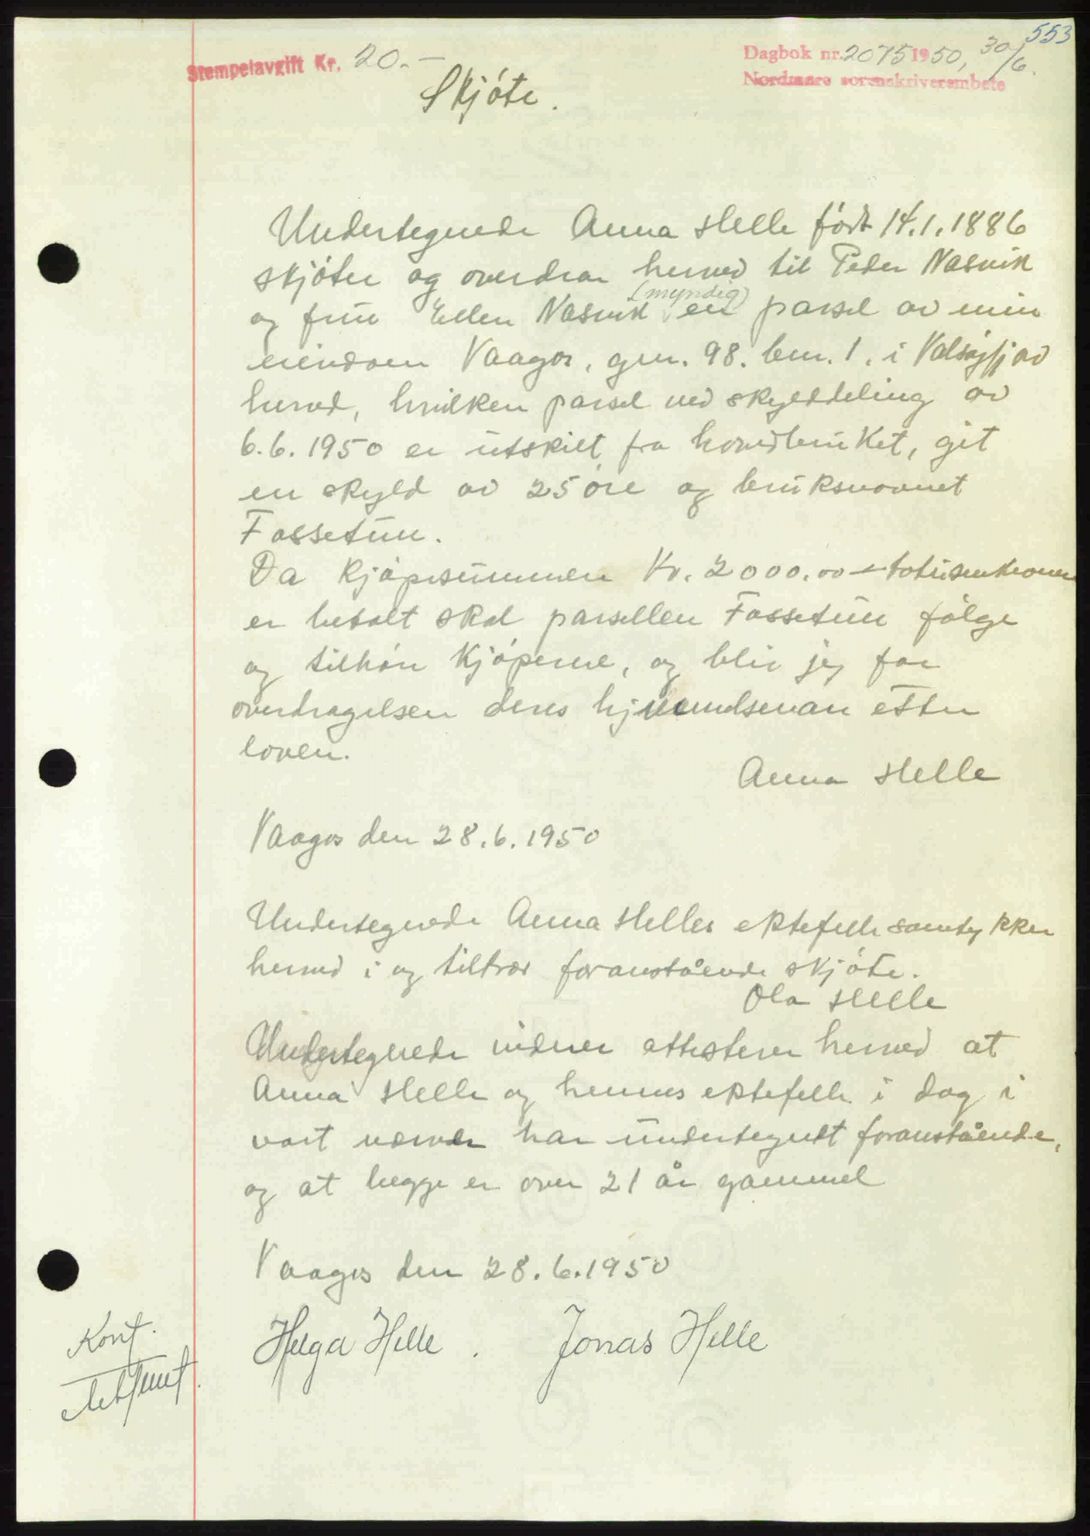 553
Stempelavgift Kr. 20.—
Dagbok nr. 2075 1950, 30/6.
Nordmøre sorenskriverembete
Skjøte.
Undertegnede Anna Helle født 14.1.1886
skjøter og overdrar herved til Peder Nasvik
og frue Ellen Nasvik (myndig) en parsel av min
eiendom Vaagos, gnr. 98. bnr. 1. i Valsøyfjord
herred, hvilken parsel ved skylddeling av
6.6.1950 er utskilt fra hovedbruket, git
en skyld av 25 øre og bruksnavnet
Fossetun.
Da kjøpesummen Kr. 2000.00 totusenkroner
er betalt skal parsellen Fossetun følge
og tilhøre kjøperne, og blir jeg for
overdragelsen deres hjemmelsman etter
loven.
Anna Helle
Vaagos den 28.6.1950
Undertegnede Anna Helles ektefelle samtykker
herved i og tiltrær foranstående skjøte.
Ola Helle
Undertegnede vidner attesterer herved at
Anna Helle og hennes ektefelle i dag i
vort nærvær har undertegnet foranstående,
og at begge er over 21 år gammel
Vaagos den 28.6.1950
Helga Helle. Jonas Helle
Konf.